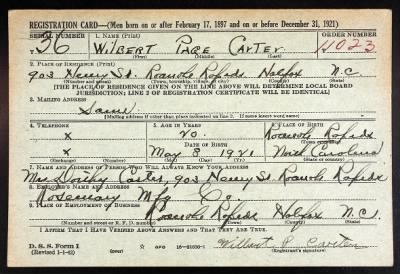 REGISTRATION CARD—(Men born on or after February 17, 1897 and on or before December 31, 1921)
SERIAL NUMBER 1. NAME (Print) ORDER NUMBER
36 Wilbert Page Carter 11023
(First) (Middle) (Last)
2. PLACE OF RESIDENCE (Print)
903 Henry St. Roanoke Rapids Halifax N.C.
(Number and street) (Town, township, village, or city) (County) (State)
[THE PLACE OF RESIDENCE GIVEN ON THE LINE ABOVE WILL DETERMINE LOCAL BOARD
JURISDICTION; LINE 2 OF REGISTRATION CERTIFICATE WILL BE IDENTICAL]
3. MAILING ADDRESS
Same
[Mailing address if other than place indicated on line 2. If same insert word same]
4. TELEPHONE 5. AGE IN YEARS 6. PLACE OF BIRTH
x 20. Roanoke Rapids
DATE OF BIRTH (Town or county)
x May 8 1921 North Carolina
(Exchange) (Number) (Mo.) (Day) (Yr.) (State or country)
7. NAME AND ADDRESS OF PERSON WHO WILL ALWAYS KNOW YOUR ADDRESS
Mrs 903 Henry St. Roanoke Rapids
8. EMPLOYER'S NAME AND ADDRESS
Rosemary Mfg Co.
9. PLACE OF EMPLOYMENT OR BUSINESS
Roanoke Rapids Halifax N.C.
(Number and street or R. F. D. number) (Town) (County) (State)
I AFFIRM THAT I HAVE VERIFIED ABOVE ANSWERS AND THAT THEY ARE TRUE.
D. S. S. Form 1
(Revised 1-1-42) GPO 16—21630-1 Wilbert P. Carter
(Registrant's signature)